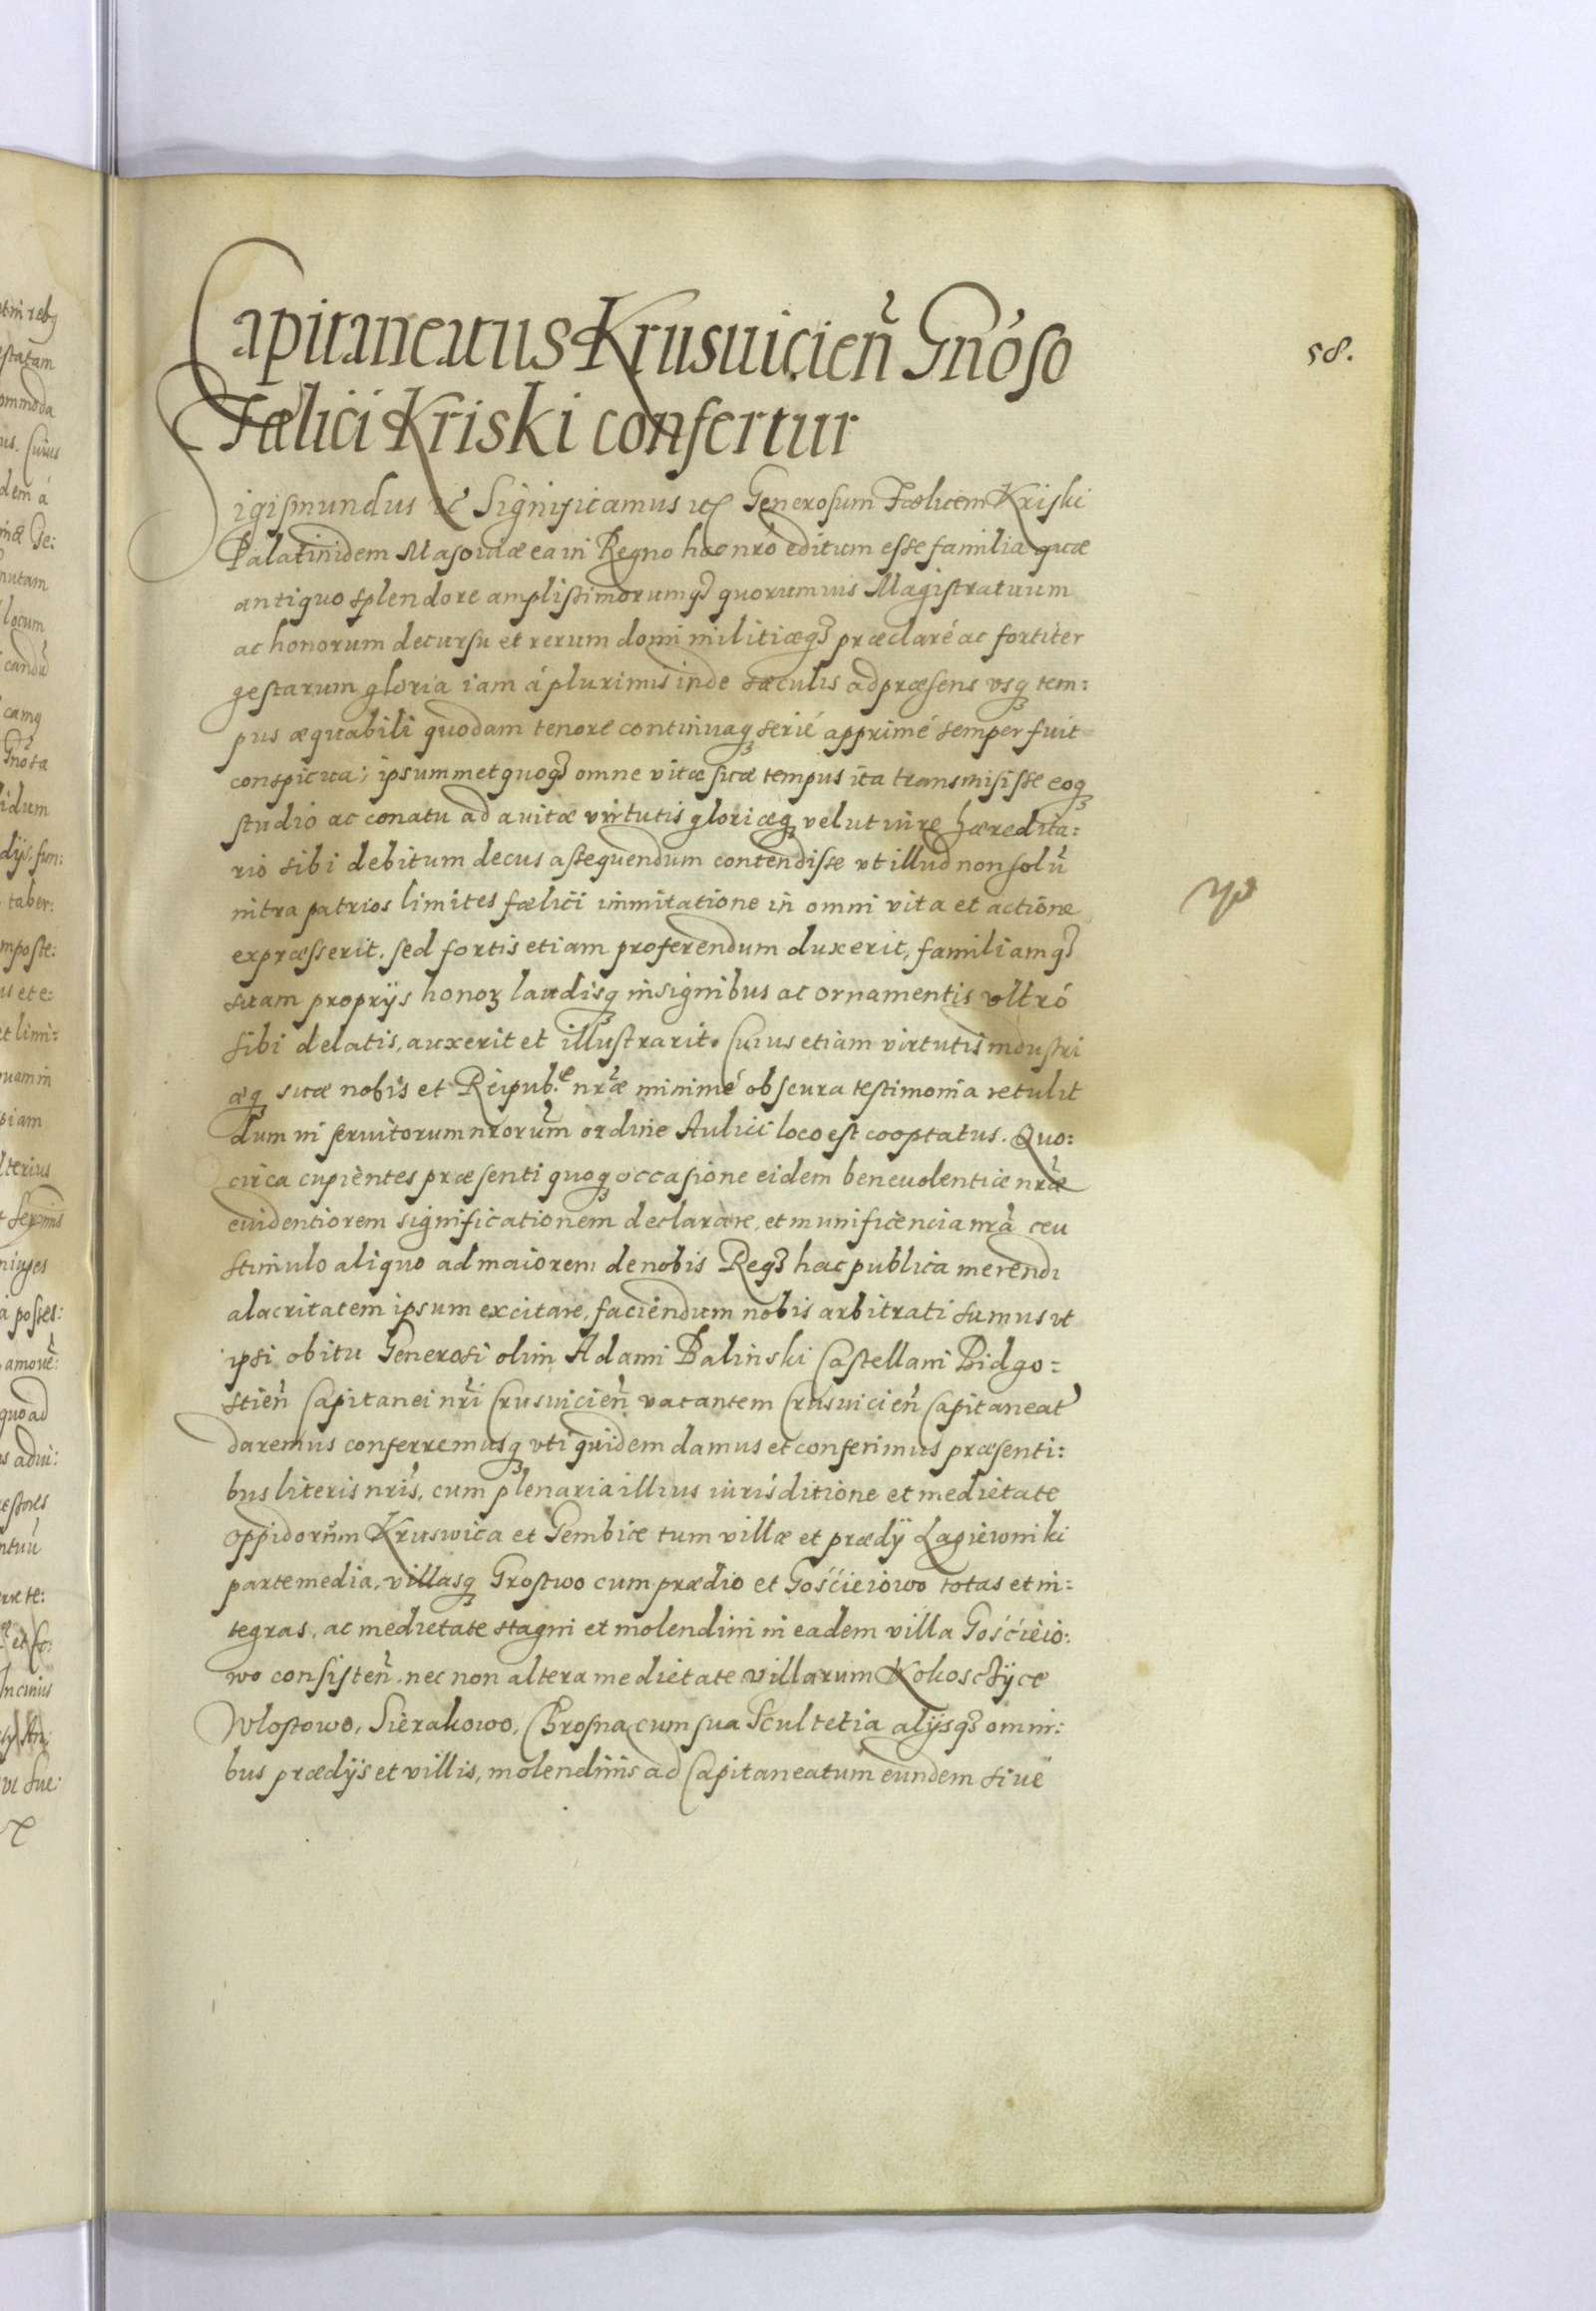 58.
Capitaneatus Krusuicien̄ Gnóso
Fælici Kriski confertur
Sigismundus etc Significamus etc Generosum Fælicem Kriski
Palatinidem Masouiæ ea in Regno hoc nrō editum esse familia quæ
antiquo splendore amplissimorumq3 quorumuis Magistratuum
ac honorum decursu et rerum domi militiæq3 præclaré ac fortiter
gestarum gloria iam á plurimis inde sæculis ad præsens vsq3 tem:
pus æquabili quodam tenore continuaq3 serié apprimé semper fuit
conspicua; ipsummet quoq3 omne vitæ suæ tempus ita transmisisse eoq3
studio ac conatu ad auitæ virtutis gloriæq3 velut iure hæredita:
rio sibi debitum decus assequendum contendisse vt illud non solū
intra patrios limites fælici immitatione in omni vita et actione
expræsserit. sed fortis etiam proferendum duxerit, familiamq3
suam proprijs honoꝝ laudisq3 insignibus ac ornamentis vltró
sibi delatis, auxerit et illustrarit. Cuius etiam virtutis industri
æq3 suæ nobis et Reipub.e nræ minimé obscura testimonia retulit
dum in seruitorum nrorum ordine Aulici loco est cooptatus. Quo:
circa cupientes præsenti quoq3 occasione eidem beneuolentiæ nræ
euidentiorem significationem declarare, et munificencia nrā ceu
stimulo aliquo ad maiorem de nobis Req3 hac publica merendi
alacritatem ipsum excitare, faciendum nobis arbitrati sumus vt
ipsi obitu Generosi olim Adami Balinski Castellani Bidgo=
stien̄ Capitanei nrī Crusuicien̄ vacantem Crusuicien̄ Capitaneat
daremus conferremusq3 vti quidem damus et conferimus præsenti:
bus literis nrīs, cum plenaria illius iurisditione et medietate
oppidorum Kruswica et Gembice tum villæ et prædij Łagiewniki
parte media, villasq3 Grostwo cum prædio et Gościeiowo totas et in=
tegras, ac medietate stagni et molendini in eadem villa Gościeio:
wo consisten̄. nec non altera medietate villarum Kokosczÿce
Wlostowo, Sierakowo, Brosna cum sua Scultetia alijsq3 omni:
bus prædijs et villis, molendinis ad Capitaneatum eundem siue